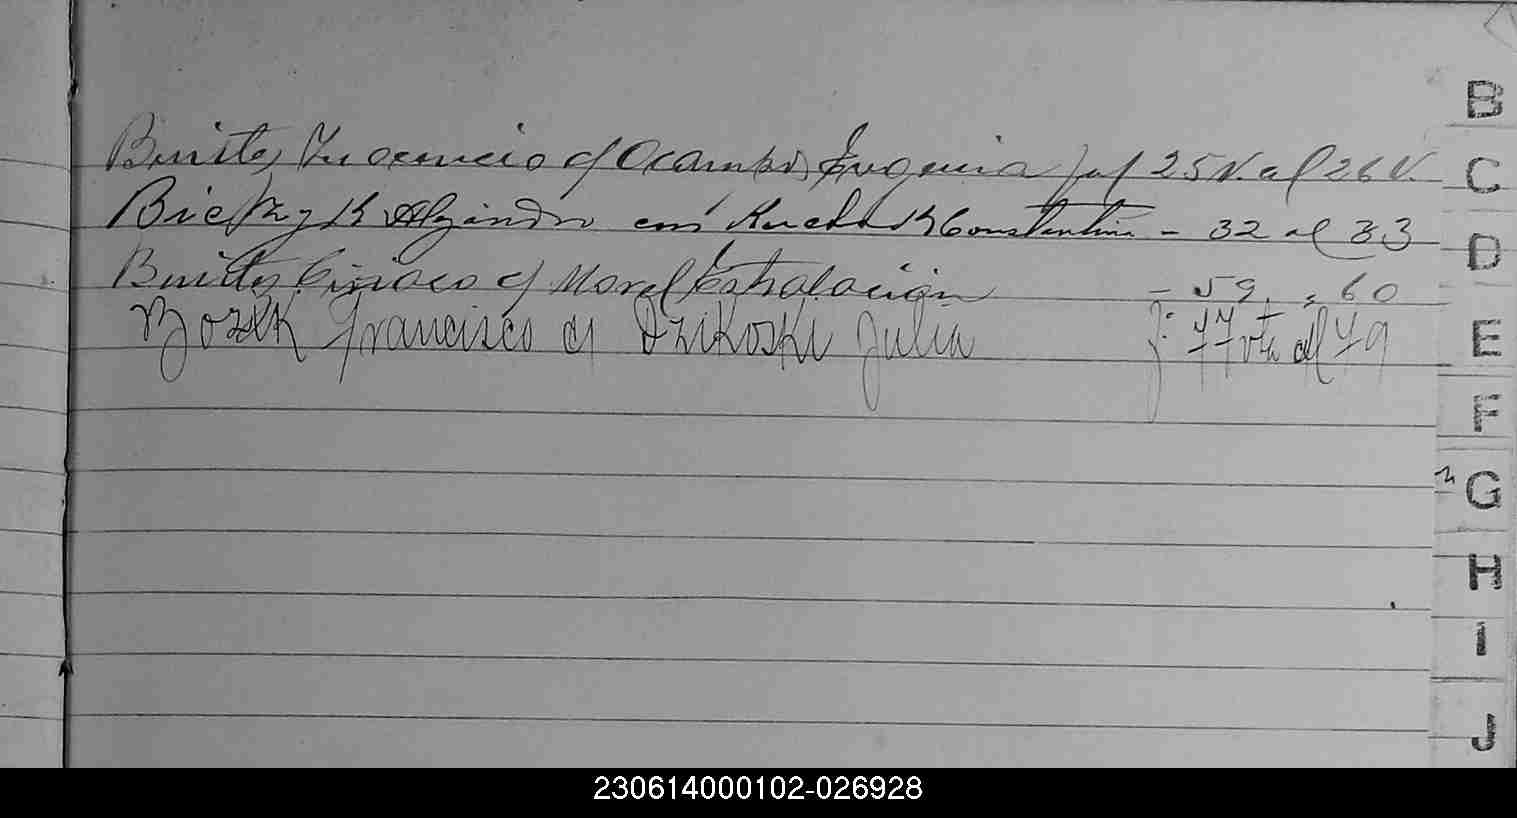 Benitez Inocencio c/ Ocampo, Eugenia fol 25 V. al 26 V.
B
C
Alejandro con Constantina - 32 al 33
D
Benitez Ciriaco c/ Morel Estralación - 59 " " 60
Bozek Francisco c/ Dzikoski Julia f: 77 vta al 79
E
F
G
H
I
J
230614000102-026928